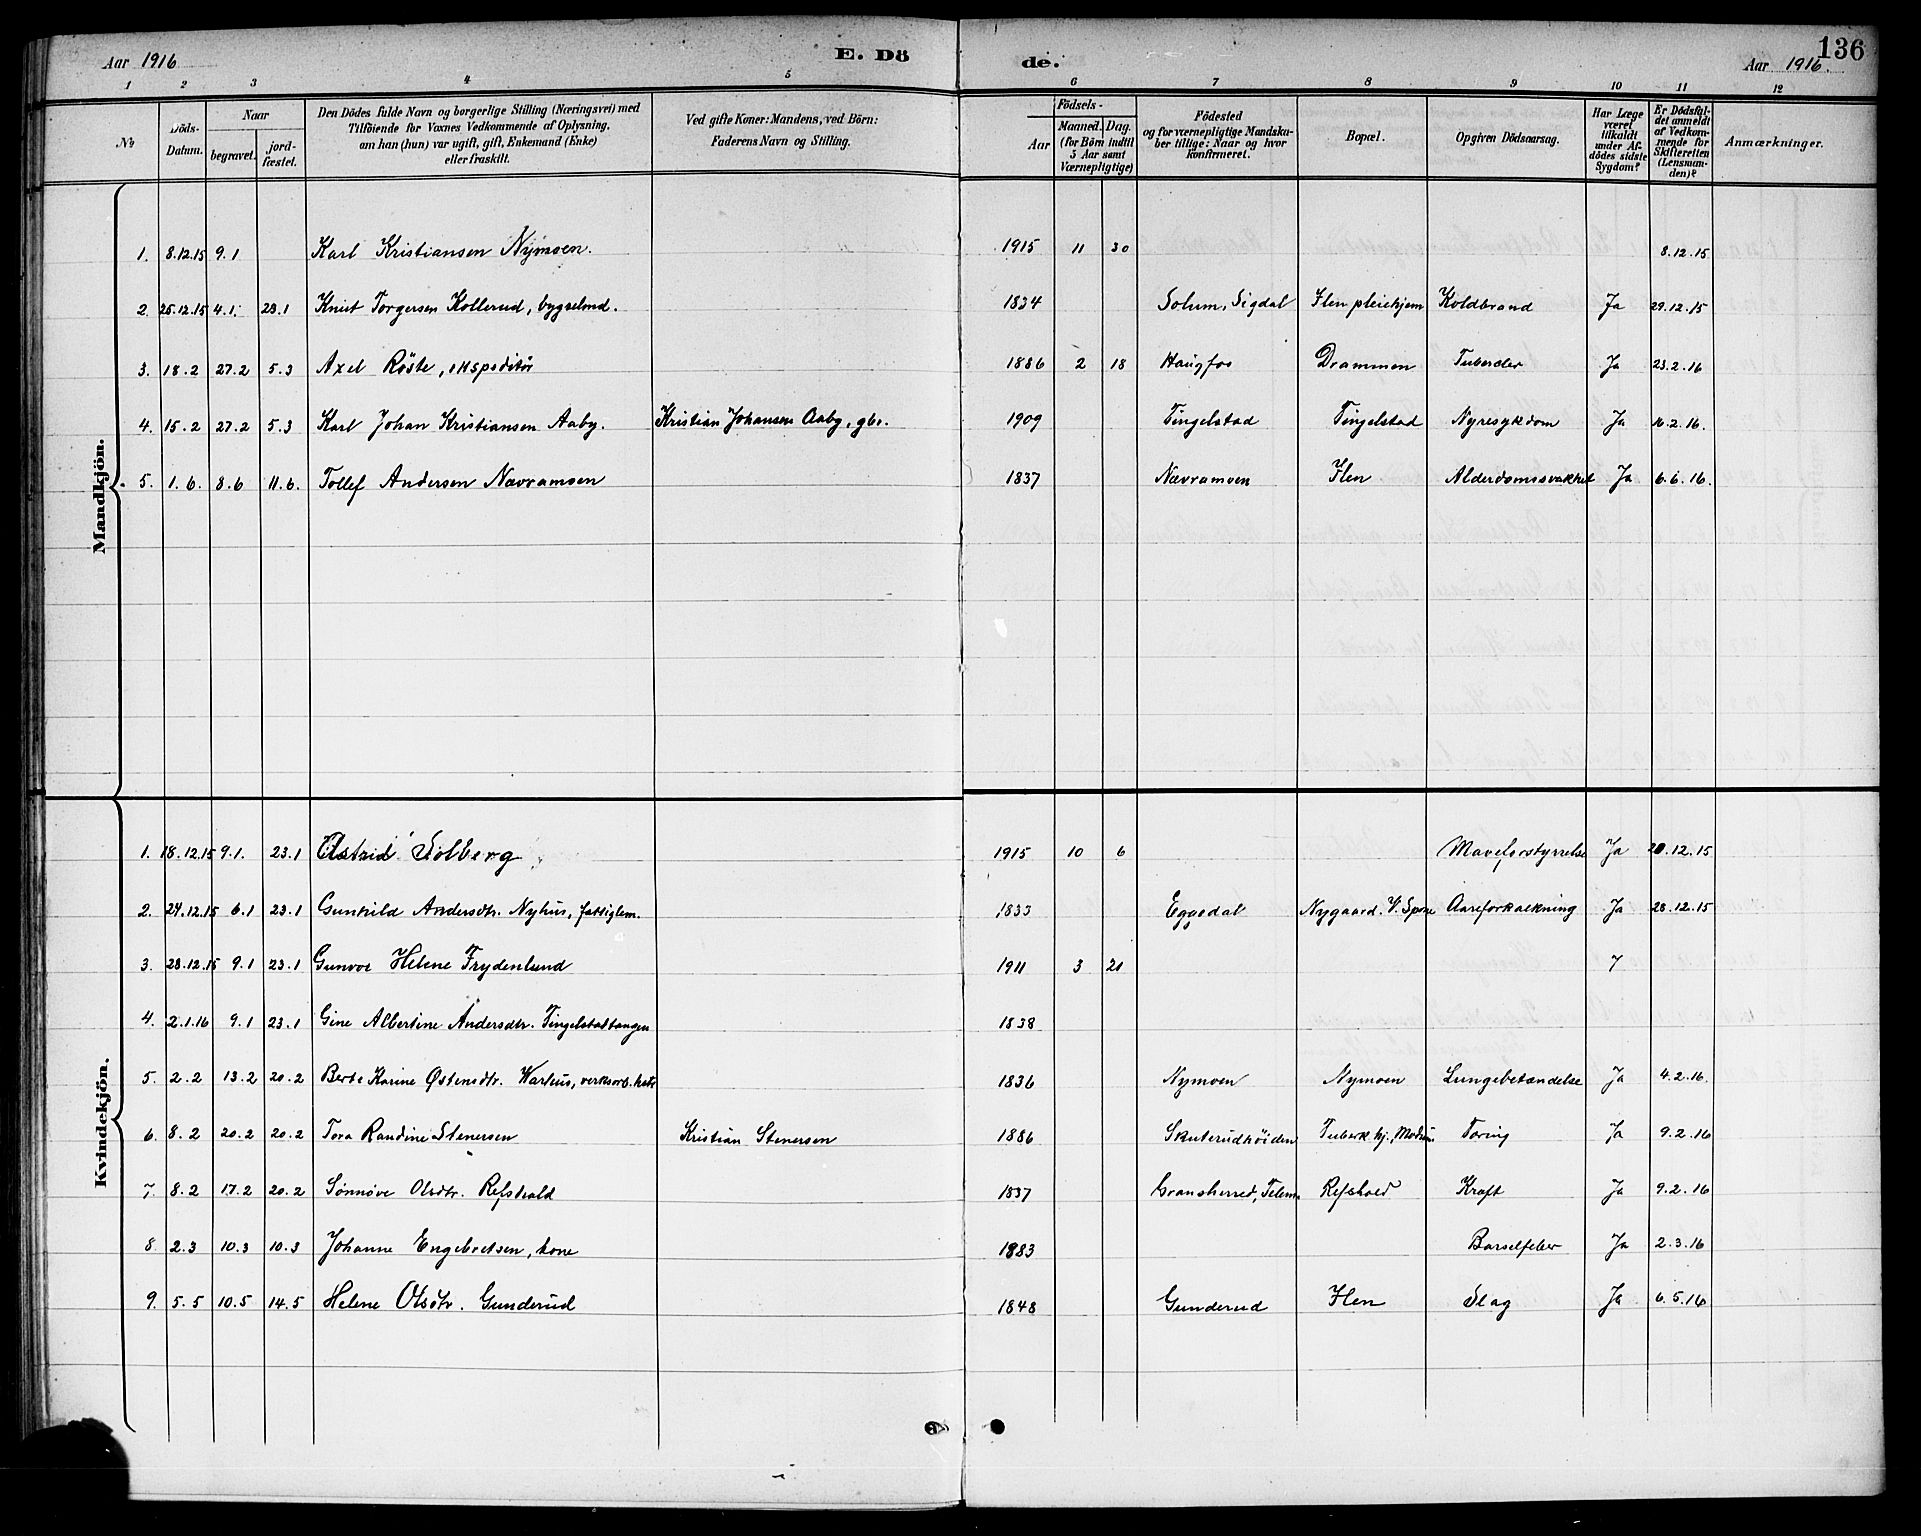 Aar 1916 E. Dö de. Aar 1916. 136
1 2 3 4 5 6 7 8 9 10 11 12
№ Döds-Datum. Naar begravet. jordfæstet. Den Dödes fulde Navn og borgerlige Stilling (Næringsvei) med Tilföiende for Voxnes Vedkommende af Oplysning, om han (hun) var ugift, gift, Enkemand (Enke) eller fraskilt. Ved gifte Koner: Mandens, ved Börn: Faderens Navn og Stilling. Födsels- Aar Maaned. Dag. (for Börn indtil 5 Aar samt Værnepligtige) Födested og for værnepligtige Mandskaber tillige: Naar og hvor konfirmeret. Bopæl. Opgiven Dödsaarsag. Har Læge været tilkaldt under Afdödes sidste Sygdom? Er Dödsfaldet anmeldt af Vedkommende for Skifteretten (Lensmanden)? Anmærkninger.
Mandkjön.
1. 8.12.15 9.1 Karl Kristiansen Nymoen. 1915 11 30 8.12.15
2. 25.12.15 4.1. 23.1 Knut Torgersen Kollerud, bygselmd. 1834 Solum, Sigdal Flen pleiehjem Koldbrand Ja 29.12.15
3. 18.2 27.2 5.3 Axel Röste, ekspeditör 1886 2 18 Haugfos Drammen Tuberder Ja 23.2.16
4. 15.2 27.2 5.3 Karl Johan Kristiansen Aaby. Kristian Johansen Aaby, gbr. 1909 Tingelstad Tingelstad Nyresykdom Ja 16.2.16.
5. 1.6. 8.6 11.6. Tollef Andersen Nævramoen 1837 Nævramoen Flen Alderdomssvakhet Ja 6.6.16.
Kvindekjön.
1. 18.12.15 9.1. 23.1 Astrid Solberg 1915 10 6 Maveforstyrrelse Ja 20.12.15
2. 24.12.15 6.1 23.1 Gunhild Andersdtr. Nyhus, fattiglem. 1833 Eggedal Nygaard. V. Spone Aareforkalkning Ja 28.12.15
3. 28.12.15 9.1 23.1 Gunvor Helene Frydenlund 1911 3 21 7
4. 2.1.16 9.1 23.1 Gine Albertine Andersdtr. Tingelstadtangen 1838
5. 2.2 13.2 20.2 Berte Karine Østensdtr. Warhus, verksarb. 1836 Nymoen Nymoen Lungebetændelse Ja 4.2.16.
6. 8.2 20.2 20.2 Tora Randine Stenersen Kristian Stenersen 1886 Skuterudhöiden Tuberk.hj., Modum Toring Ja 9.2.16
7. 8.2 17.2 20.2 Sønnøve Olsdtr. Refshold 1837 Gransherred, Telem. Refshold Kræft Ja 9.2.16
8. 2.3 10.3 10.3 Johanne Engebretsen, kone 1883 Barselfeber Ja 2.3.16
9. 5.5 10.5 14.5 Helene Olsdtr. Gunderud 1848 Gunderud Flen Slag Ja 6.5.16